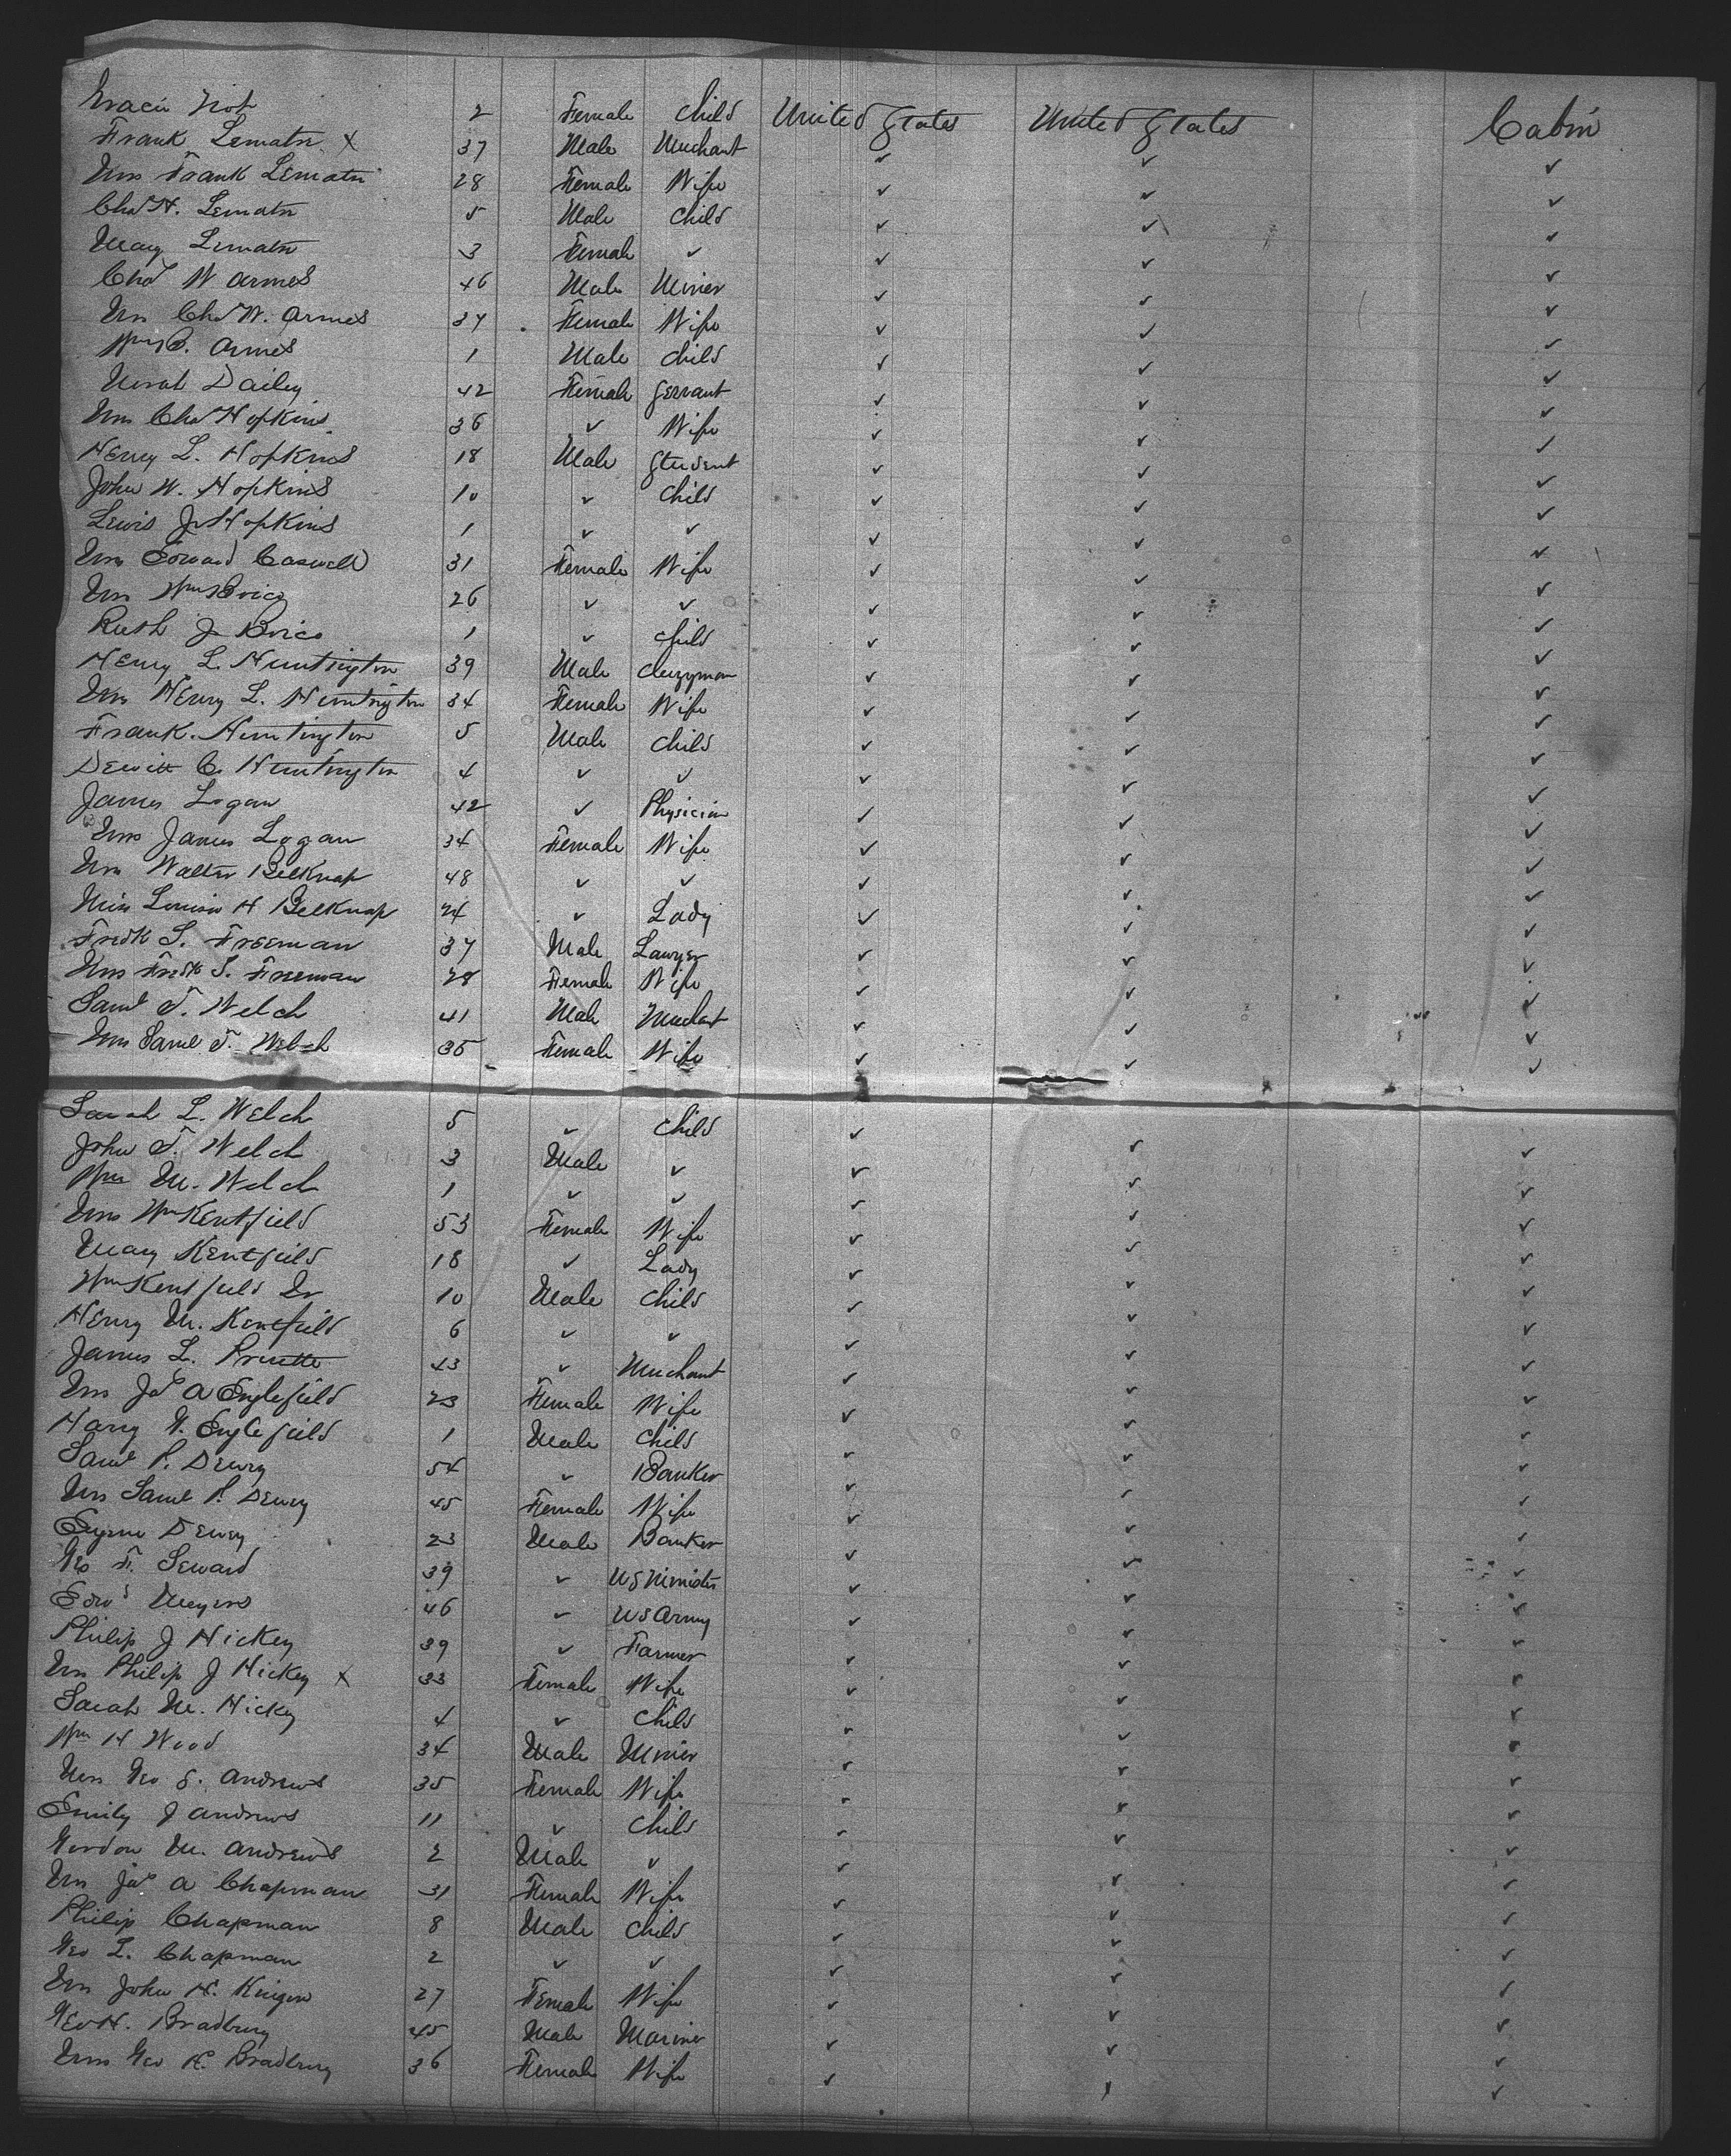 2 Female Child United States United States Cabin
Frank Lematn x 37 Male Merchant ✓ ✓ ✓
Mrs Frank Lematn 28 Female Wife ✓ ✓ ✓
Chas H. Lematn 5 Male Child ✓ ✓ ✓
Mary Lematn 3 Female ✓ ✓ ✓ ✓
Chas W Armes 46 Male Miner ✓ ✓ ✓
Mrs Chas W. Armes 34 Female Wife ✓ ✓ ✓
Wm C. Armes 1 Male Child ✓ ✓ ✓
Norah Dailey 42 Female Servant ✓ ✓ ✓
Mrs Chas Hopkins 36 ✓ Wife ✓ ✓ ✓
Henry L. Hopkins 18 Male Student ✓ ✓ ✓
John W. Hopkins 10 ✓ Child ✓ ✓ ✓
Lewis J Hopkins 1 ✓ ✓ ✓ ✓ ✓
Mrs Edward Caswell 31 Female Wife ✓ ✓ ✓
Mrs Wm Brice 26 ✓ ✓ ✓ ✓ ✓
Ruth J Brice 1 ✓ Child ✓ ✓ ✓
Henry L. Huntington 39 Male Clergyman ✓ ✓ ✓
Mrs Henry L. Huntington 34 Female Wife ✓ ✓ ✓
Frank. Huntington 5 Male Child ✓ ✓ ✓
Dewitt C. Huntington 4 ✓ ✓ ✓ ✓ ✓
James Logan 42 ✓ Physician ✓ ✓ ✓
Mrs James Logan 34 Female Wife ✓ ✓ ✓
Mrs Walter Belknap 48 ✓ ✓ ✓ ✓ ✓
Miss Louisa H Belknap 24 ✓ Lady ✓ ✓ ✓
Fredk S. Freeman 37 Male Lawyer ✓ ✓ ✓
Mrs Fredk S. Freeman 28 Female Wife ✓ ✓ ✓
Saml T. Welch 41 Male Merchant ✓ ✓ ✓
Mrs Saml T. Welch 35 Female Wife ✓ ✓ ✓
Sarah L. Welch 5 ✓ Child ✓ ✓ ✓
John T. Welch 3 Male ✓ ✓ ✓ ✓
Wm M. Welch 1 ✓ ✓ ✓ ✓ ✓
Mrs Wm Kentfield 53 Female Wife ✓ ✓ ✓
Mary Kentfield 18 ✓ Lady ✓ ✓ ✓
Wm Kentfield Jr 10 Male Child ✓ ✓ ✓
Henry M. Kentfield 6 ✓ ✓ ✓ ✓ ✓
James L. Pruette 43 ✓ Merchant ✓ ✓ ✓
Mrs Jas A Englefield 23 Female Wife ✓ ✓ ✓
Harry W. Englefield 1 Male Child ✓ ✓ ✓
Saml P. Dewey 54 ✓ Banker ✓ ✓ ✓
Mrs Saml P. Dewey 45 Female Wife ✓ ✓ ✓
Eugene Dewey 23 Male Banker ✓ ✓ ✓
Geo F. Seward 39 ✓ US Minister ✓ ✓ ✓
Edwd Meyers 46 ✓ US Army ✓ ✓ ✓
Philip J Hickey 39 ✓ Farmer ✓ ✓ ✓
Mrs Philip J Hickey x 33 Female Wife ✓ ✓ ✓
Sarah M. Hickey 4 ✓ Child ✓ ✓ ✓
Wm H Wood 34 Male Miner ✓ ✓ ✓
Mrs Geo S. Andrews 35 Female Wife ✓ ✓ ✓
Emily J Andrews 11 ✓ Child ✓ ✓ ✓
Gordon M. Andrews 2 Male ✓ ✓ ✓ ✓
Mrs Jas A Chapman 31 Female Wife ✓ ✓ ✓
Philip Chapman 8 Male Child ✓ ✓ ✓
Geo L. Chapman 2 ✓ ✓ ✓ ✓ ✓
Mrs John H. 27 Female Wife ✓ ✓ ✓
Geo H. Bradbury 45 Male Mariner ✓ ✓ ✓
Mrs Geo H. Bradbury 36 Female Wife ✓ ✓ ✓